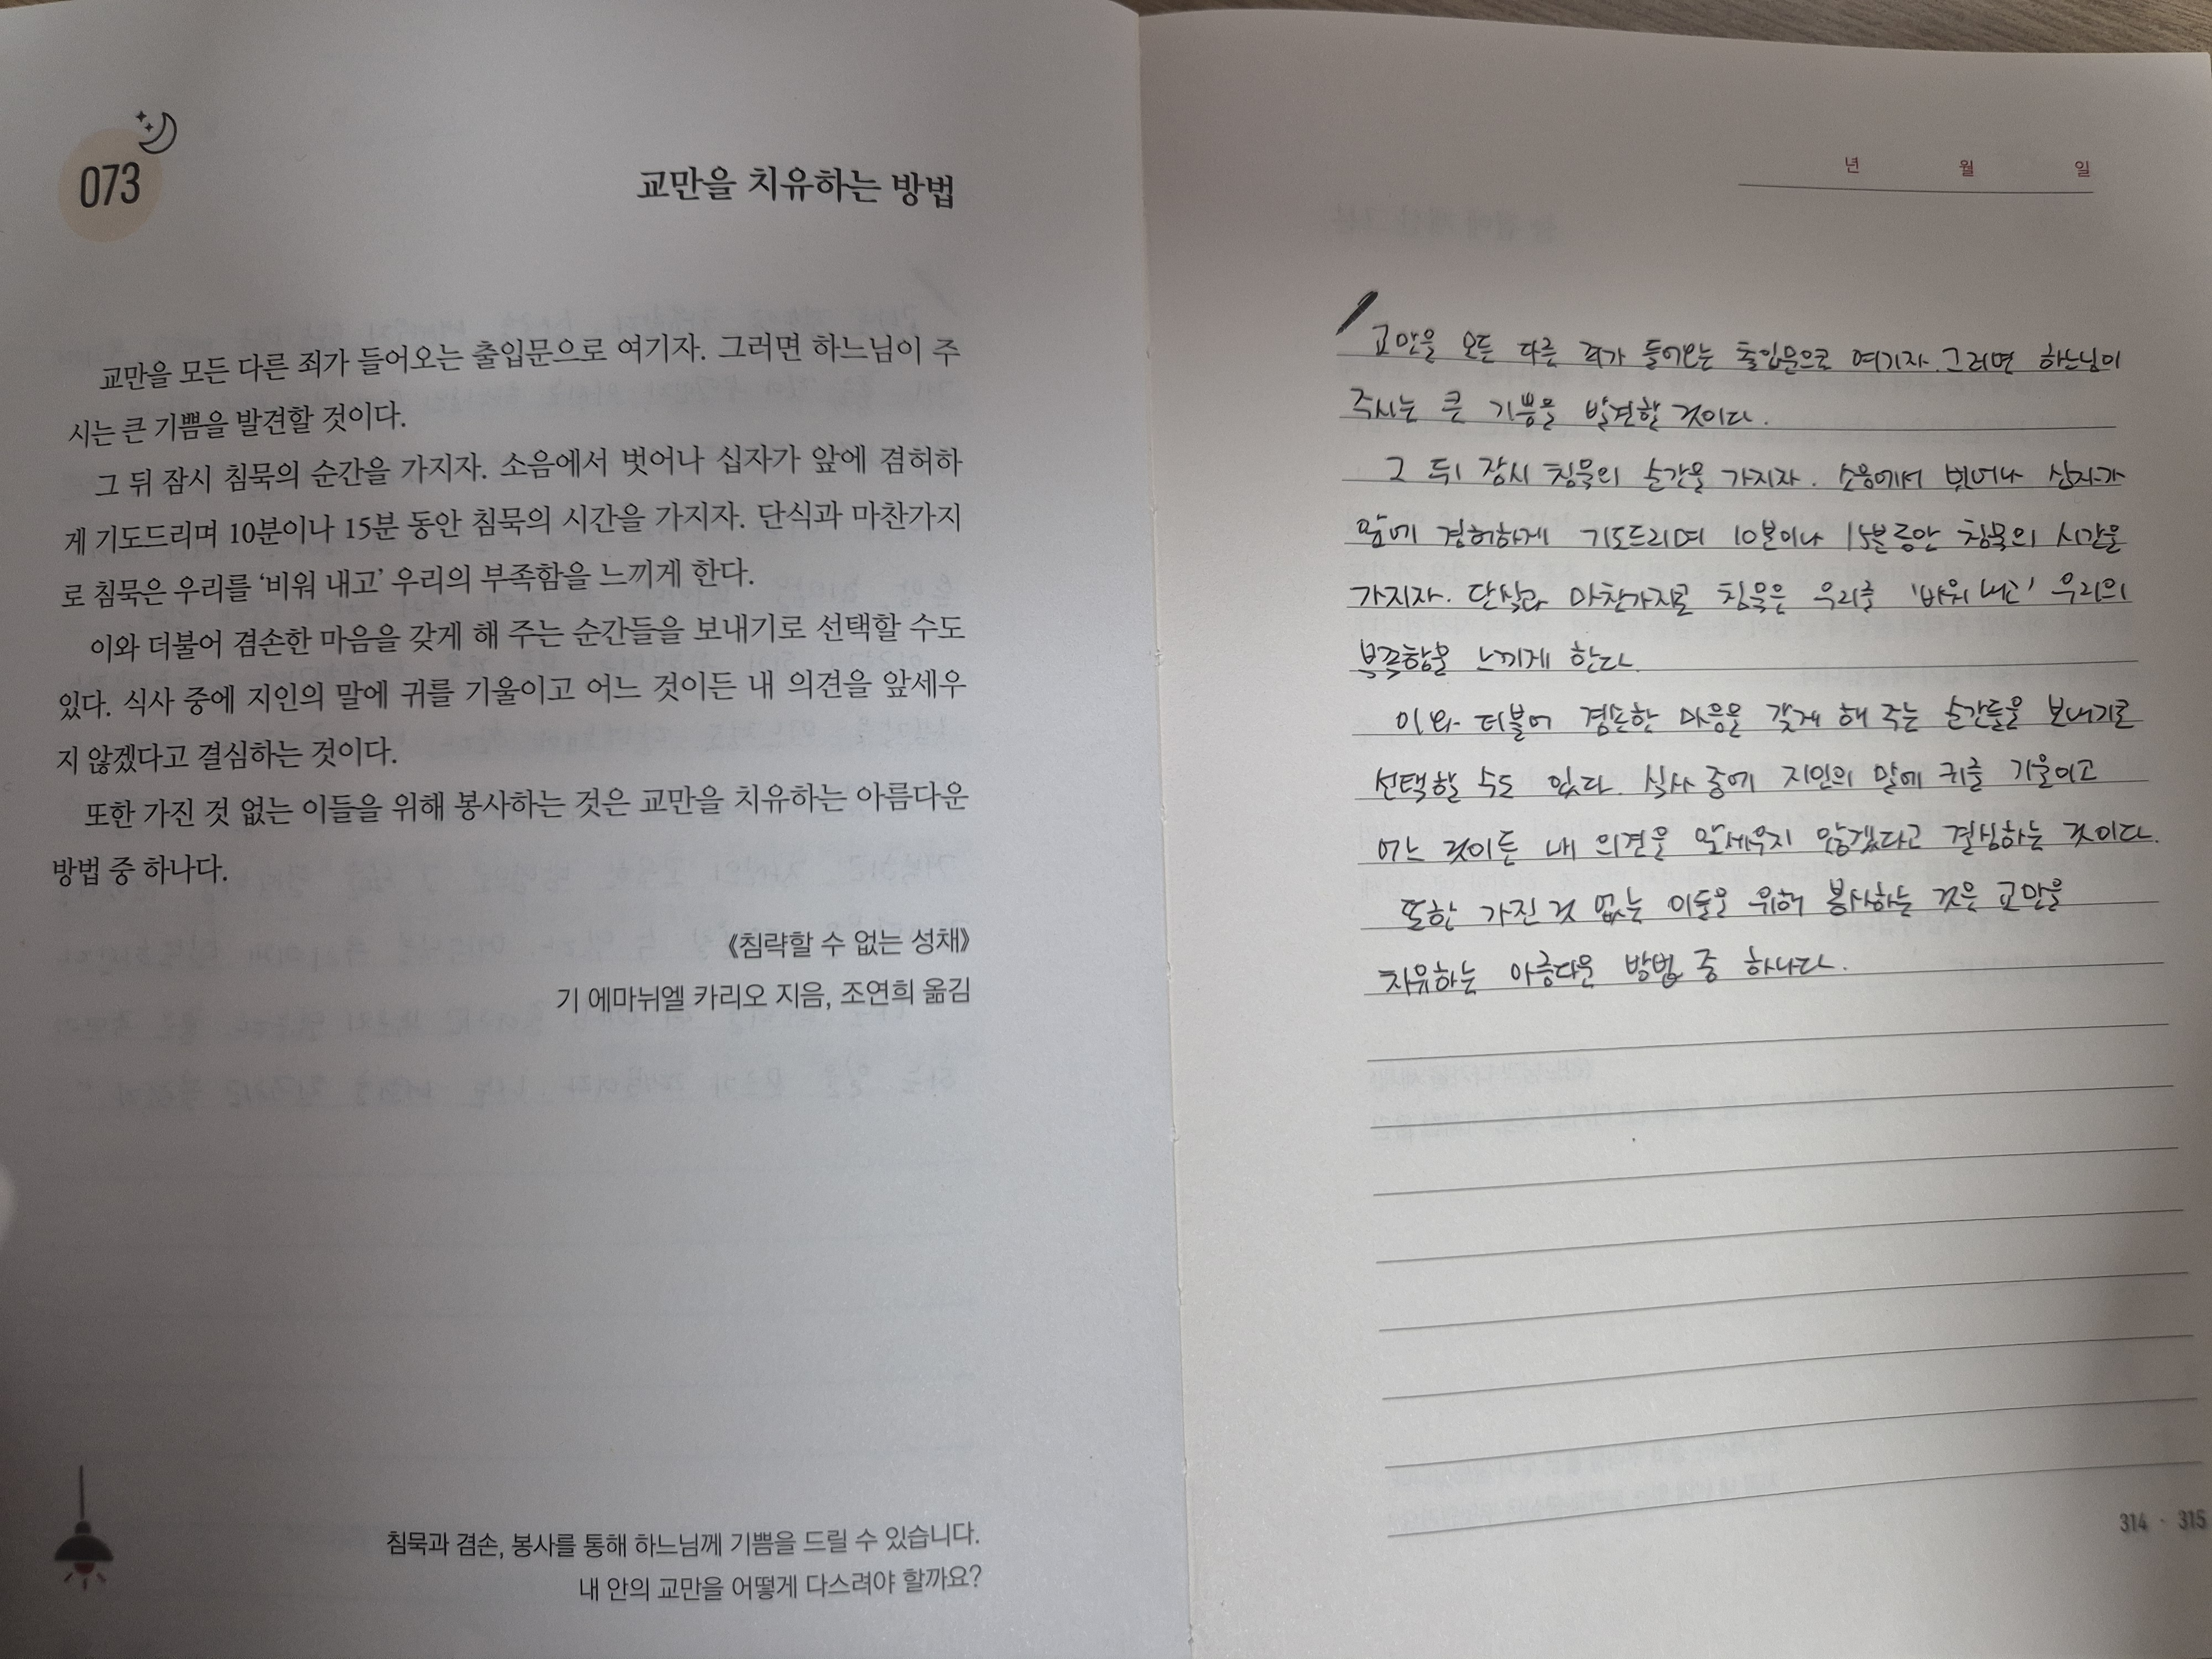 073
교만을 치유하는 방법
교만을 모든 다른 죄가 들어오는 출입문으로 여기자. 그러면 하느님이 주
시는 큰 기쁨을 발견할 것이다.
그 뒤 잠시 침묵의 순간을 가지자. 소음에서 벗어나 십자가 앞에 겸허하
게 기도드리며 10분이나 15분 동안 침묵의 시간을 가지자. 단식과 마찬가지
로 침묵은 우리를 ‘비워 내고’ 우리의 부족함을 느끼게 한다.
이와 더불어 겸손한 마음을 갖게 해 주는 순간들을 보내기로 선택할 수도
있다. 식사 중에 지인의 말에 귀를 기울이고 어느 것이든 내 의견을 앞세우
지 않겠다고 결심하는 것이다.
또한 가진 것 없는 이들을 위해 봉사하는 것은 교만을 치유하는 아름다운
방법 중 하나다.
《침략할 수 없는 성채》
기 에마뉘엘 카리오 지음, 조연희 옮김
침묵과 겸손, 봉사를 통해 하느님께 기쁨을 드릴 수 있습니다.
내 안의 교만을 어떻게 다스려야 할까요?
년 월 일
교만을 모든 다른 죄가 들어오는 출입문으로 여기자. 그러면 하느님이
주시는 큰 기쁨을 발견할 것이다.
그 뒤 잠시 침묵의 순간을 가지자. 소음에서 벗어나 십자가
앞에 겸허하게 기도드리며 10분이나 15분 동안 침묵의 시간을
가지자. 단식과 마찬가지로 침묵은 우리를 '비워 내고' 우리의
부족함을 느끼게 한다.
이와 더불어 겸손한 마음을 갖게 해 주는 순간들을 보내기로
선택할 수도 있다. 식사 중에 지인의 말에 귀를 기울이고
어느 것이든 내 의견을 앞세우지 않겠다고 결심하는 것이다.
또한 가진 것 없는 이들을 위해 봉사하는 것은 교만을
치유하는 아름다운 방법 중 하나다.
314 · 315